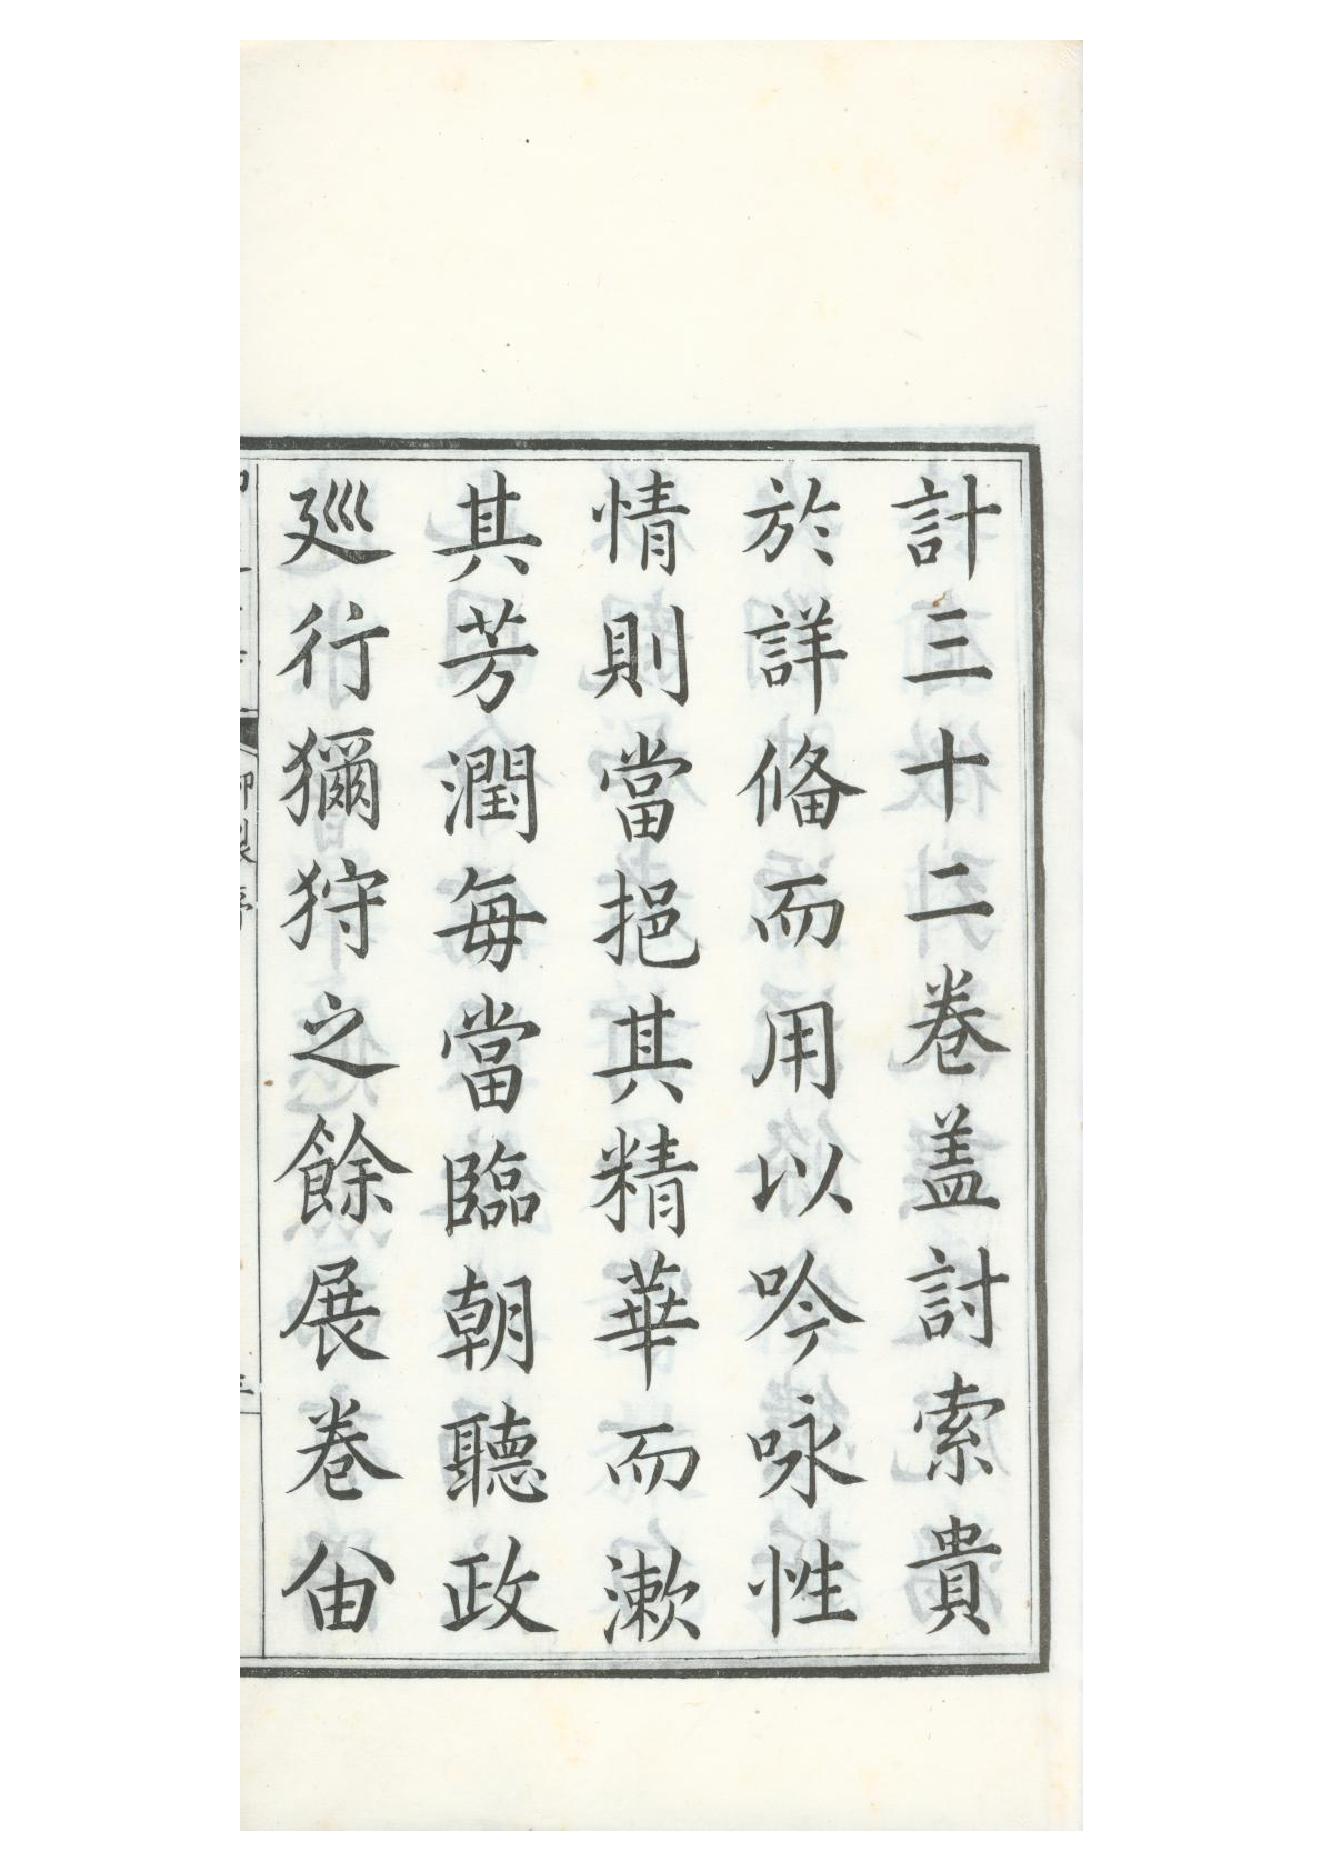 計三十二卷盖討索貴
於詳俻而用以吟咏性
情則當挹其精華而漱
其芳潤每當臨朝聽政
廵行獮狩之餘展卷留
御製序
三